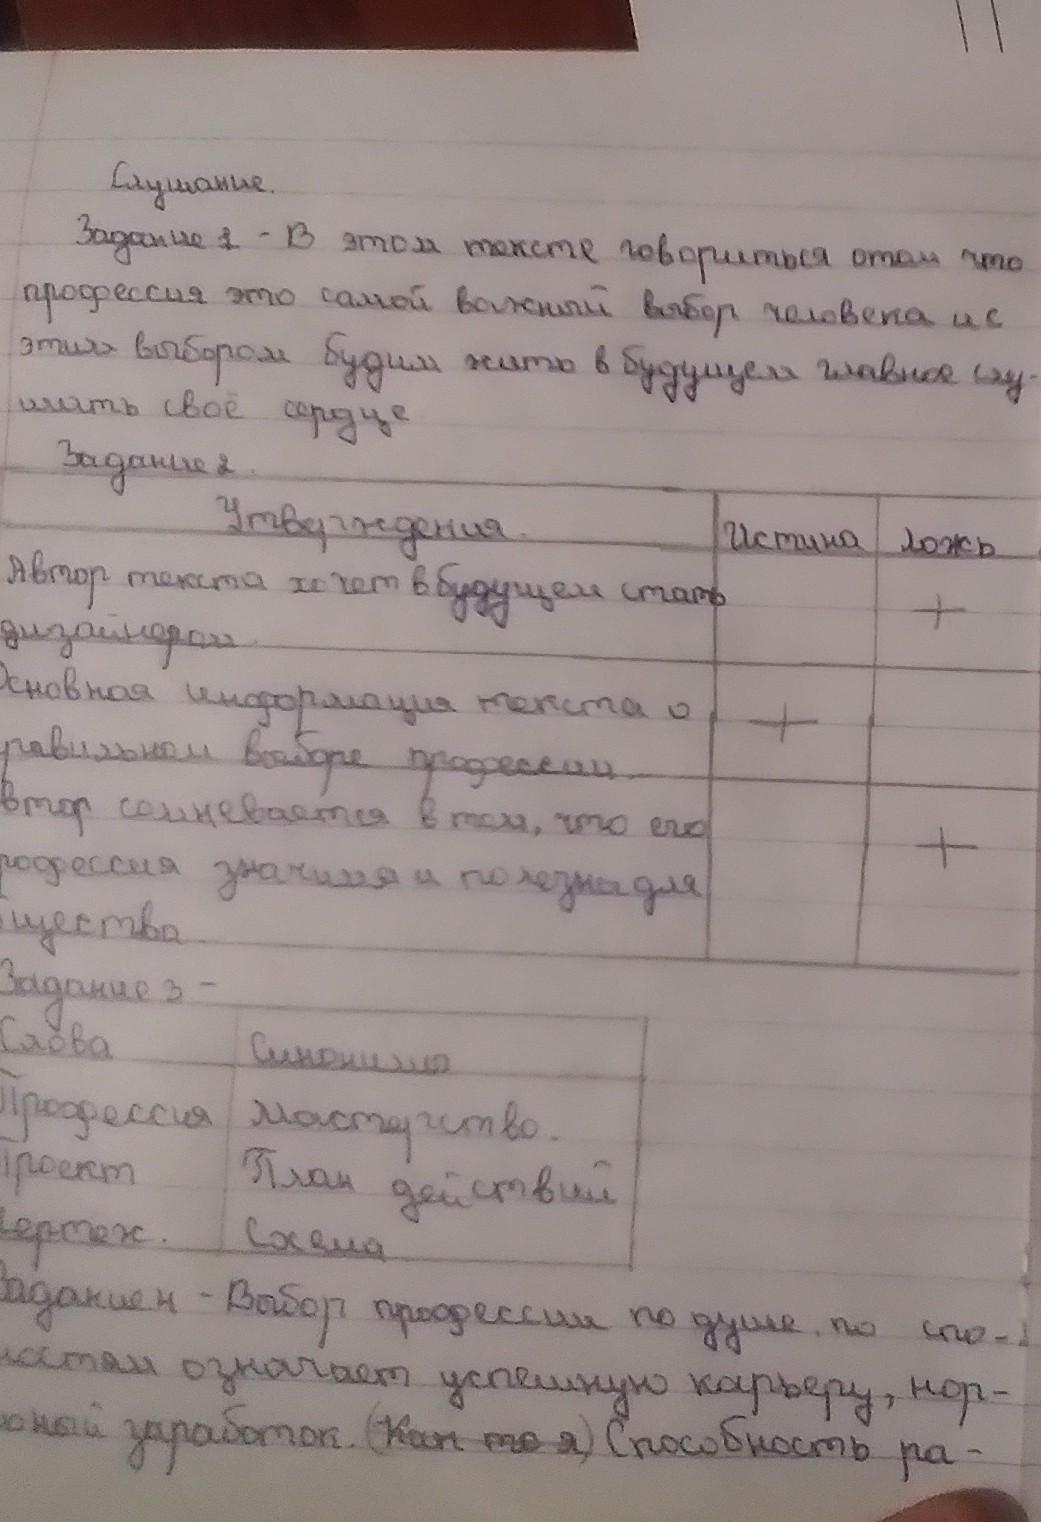 Слушание.
Задание 1 - В этом тексте говориться отом что
профессия это самой важный выбор человека и с
этим выбором будим жить в будущем главное слу-
шать своё сердце
Задание 2.
Утверждения. Истина ложь
Автор текста хочет в будущем стать +
дизайнером.
Основная информация текста о +
правильном выборе профессии
втор сомневается в том, что его +
рофессия значимя и полезна для
щества
Задание 3 -
Слова Синонимы
Профессия мастерство.
Проект План действий
Чертеж. Схема
Задание 4 - Выбор профессии по душе. по спо-
ностям означает успешную карьеру, нор-
ьный заработок. (Как то я) Способность ра-